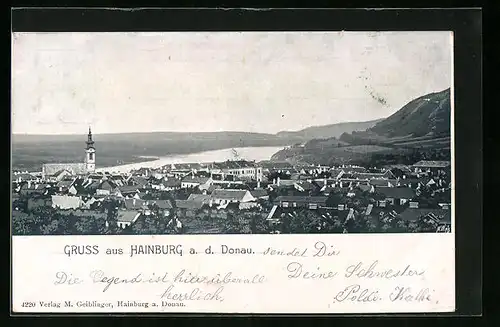 GRUSS aus HAINBURG a. d. Donau. sendet Dir
Die Gegend ist hier überall Deine Schwester
herrlich, Poldi
4220 Verlag M. Geiblinger, Hainburg a. Donau.